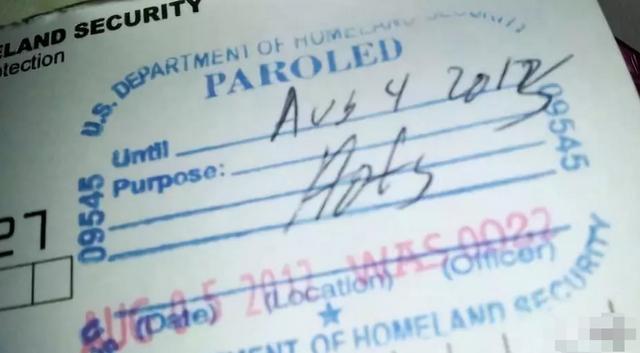 ELAND SECURITY
tection
U.S. DEPARTMENT OF HOMELAND SECURITY
PAROLED
Until Aug 4 2013
Purpose:
09545
09545
27
AUG 05 2012 WAS 0022
(Date) (Location) (Officer)
MENT OF HOMELAND SECURITY